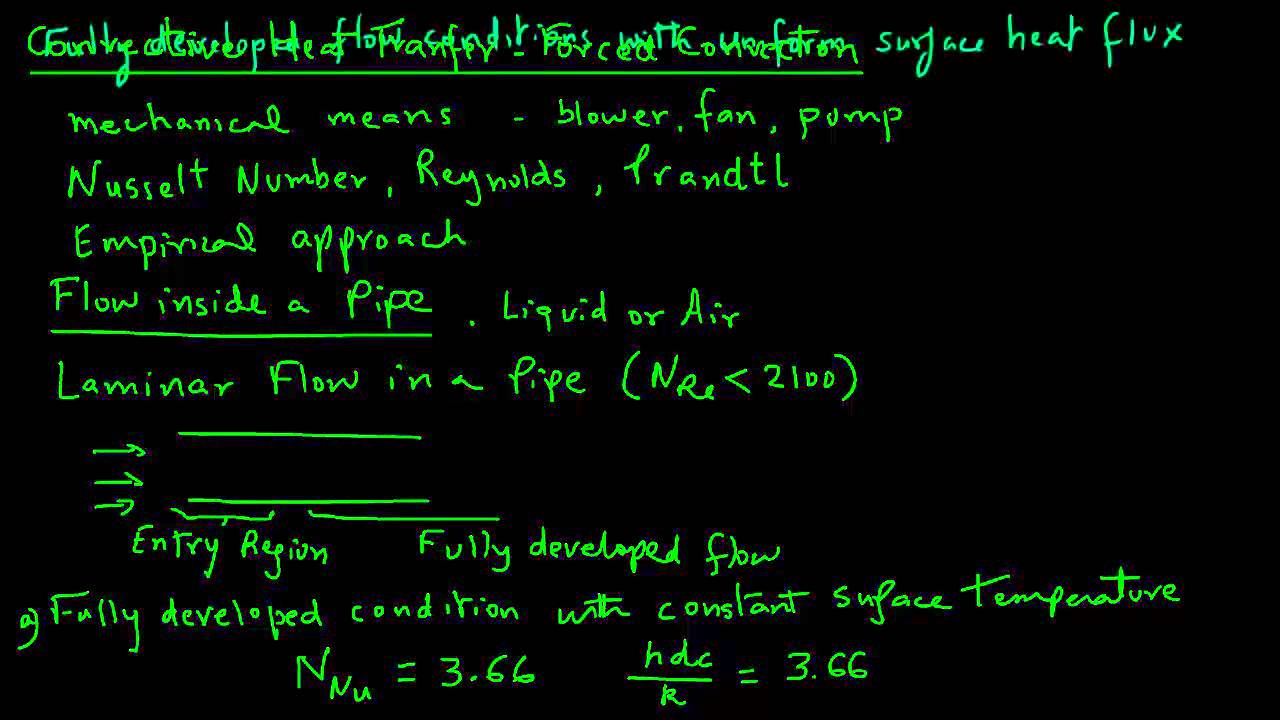 Convective Heat Tranfer - Forced Convection
Fully developed flow conditions with uniform surface heat flux
mechanical means - blower, fan, pump
Nusselt Number, Reynolds, Prandtl
Empirical approach
Flow inside a Pipe . Liquid or Air
Laminar Flow in a Pipe (N_Re < 2100)
Entry Region Fully developed flow
a) Fully developed condition with constant surface Temperature
N_Nu = 3.66 hdc/k = 3.66